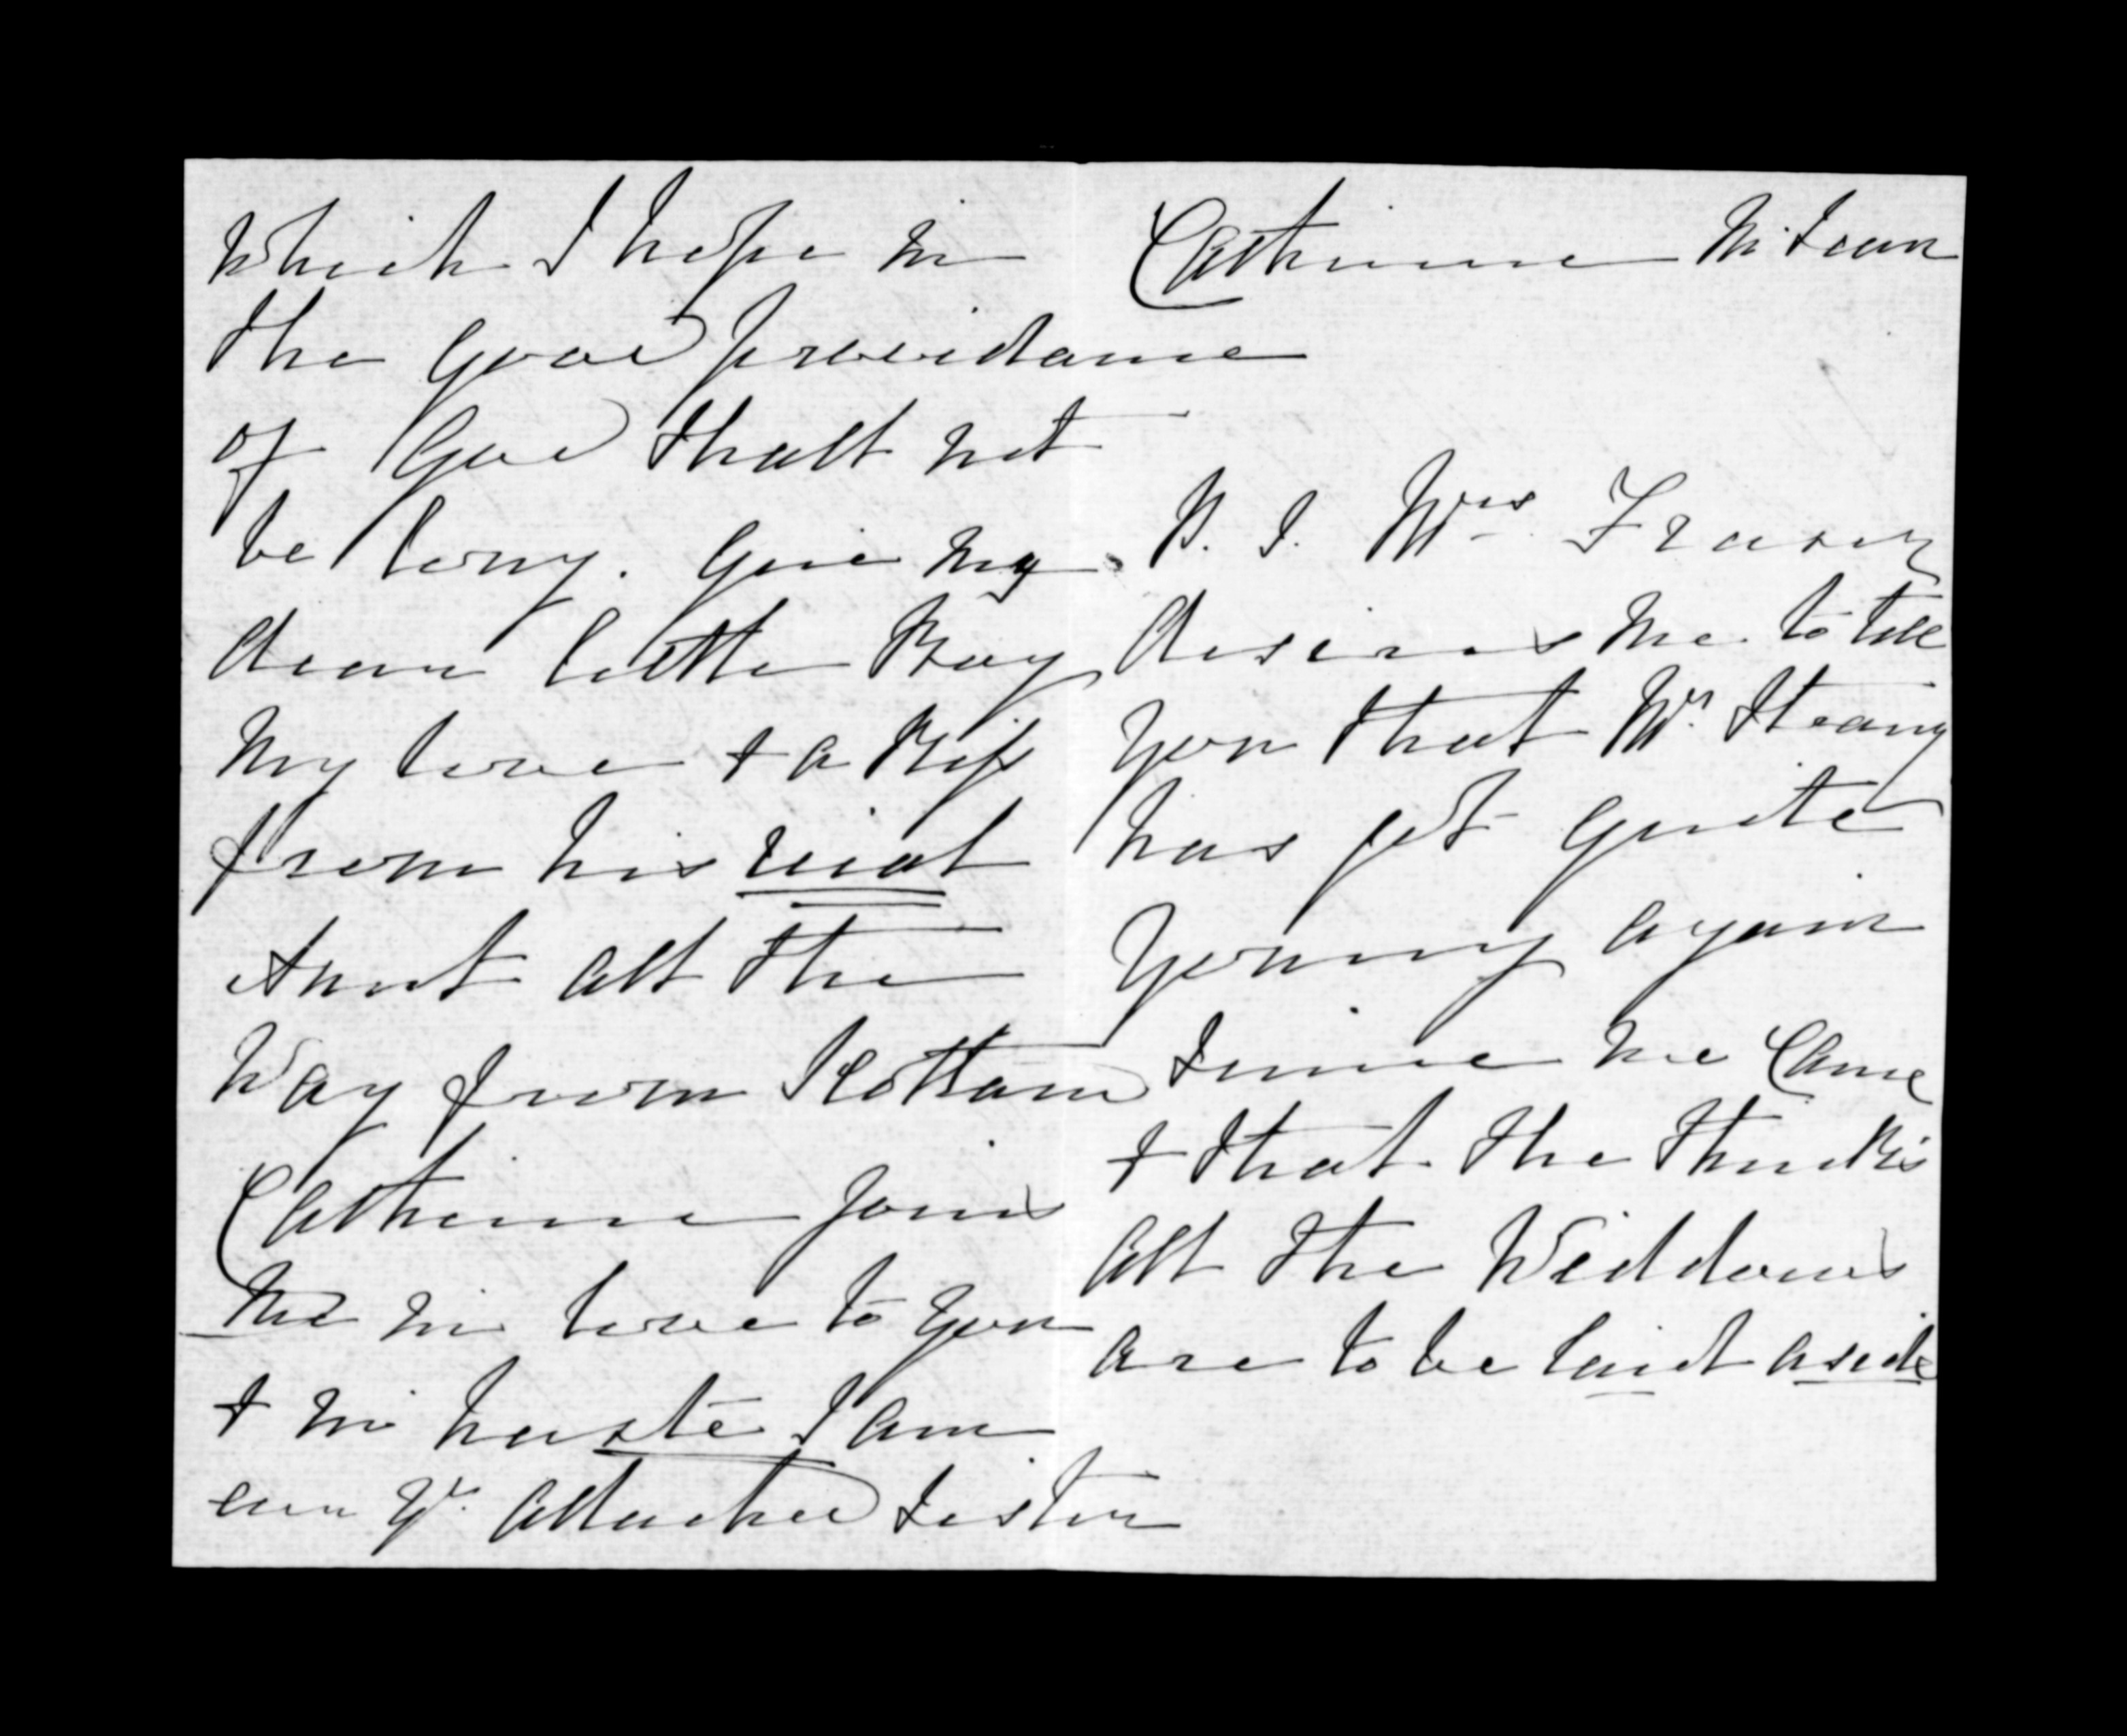 which I hope in
the good providance
of God shall not
be long. Give my
dear little Boy
my love & a Kiss
from his real
Aunt all the
way from Scotland
Catherine joins
me in love to you
& in haste I am
ever Yr. attached Sister
Catherine McLean
P. S. Mrs Fraser
desires me to tell
you that Mr. Strang
has got quite
young again
since he came
& that she thinks
all the Widdows
are to be laid aside